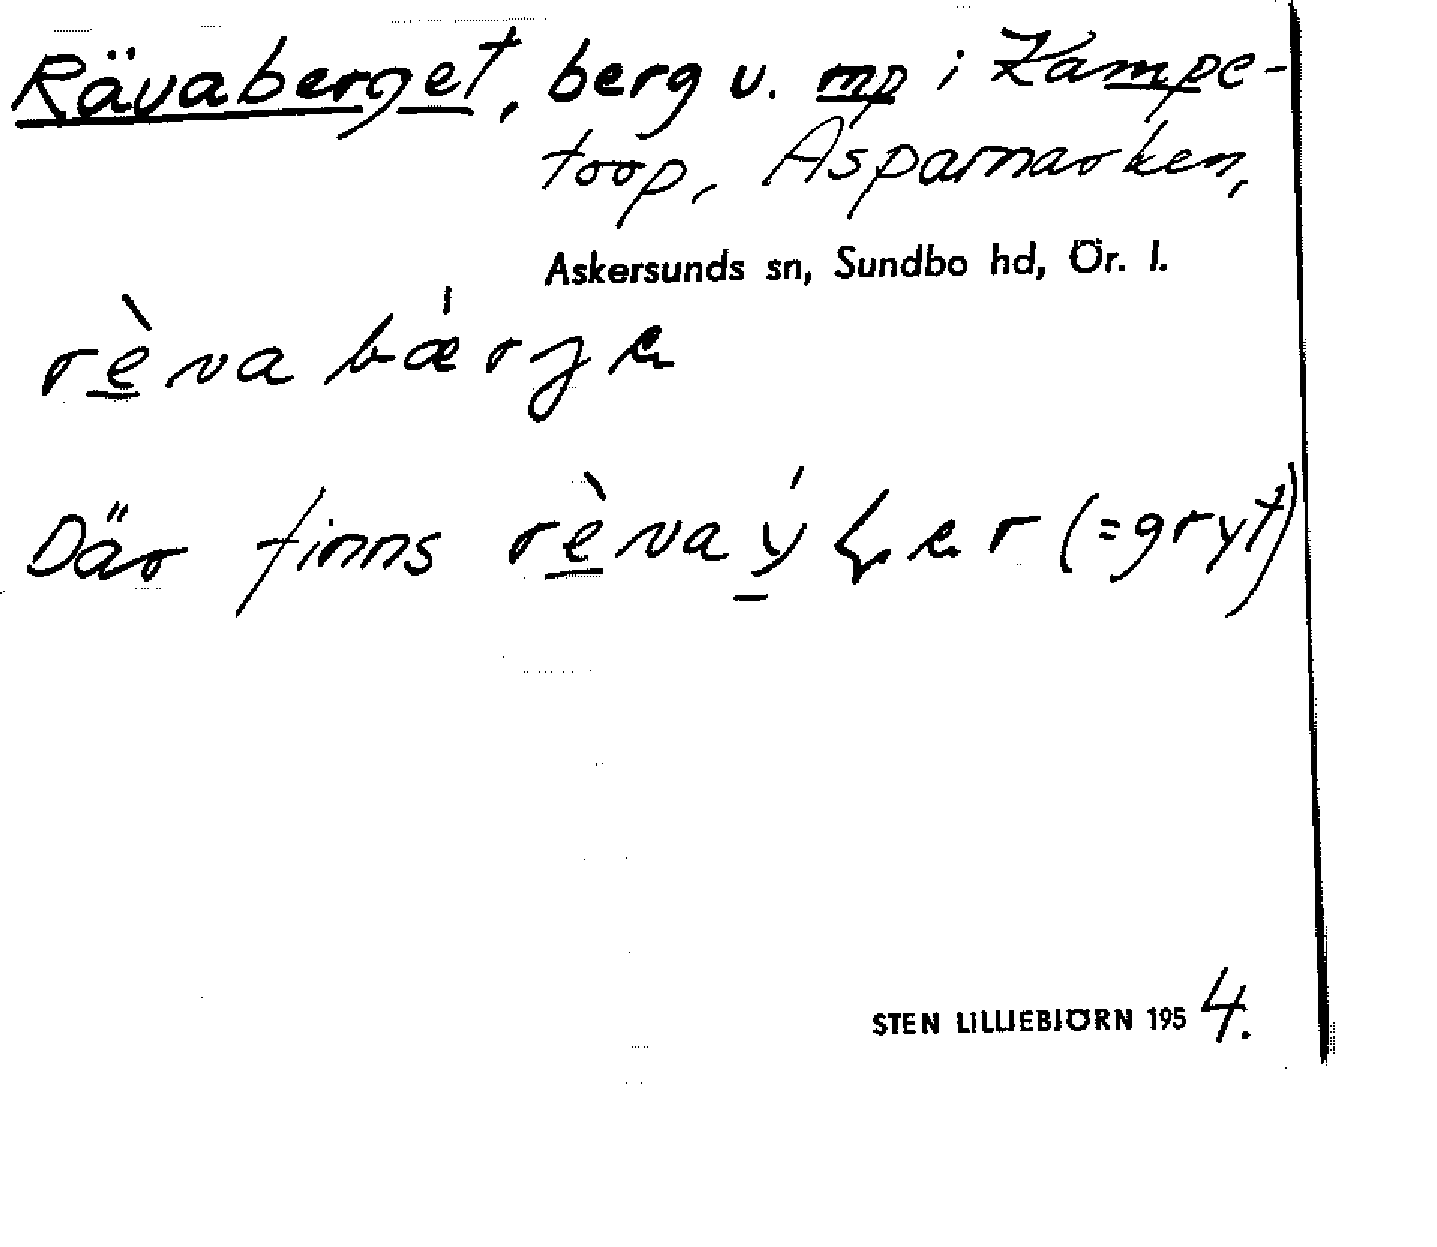 Rävaberget, berg v. mp i Kampe-
torp, Aspamarken,
Askersunds sn, Sundbo hd, Ör. l.
rèva bǽrje
Där finns rèva (=gryt)
STEN LILLIEBJÖRN 1954.